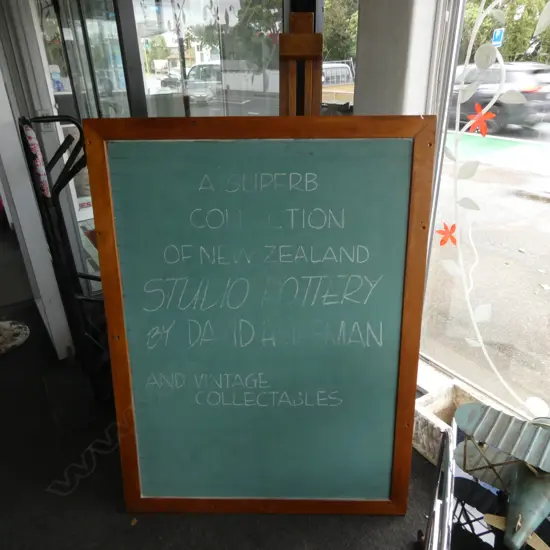 A SUPERB
COLLECTION
OF NEW ZEALAND
STUDIO POTTERY
BY DAVID
AND VINTAGE
COLLECTABLES